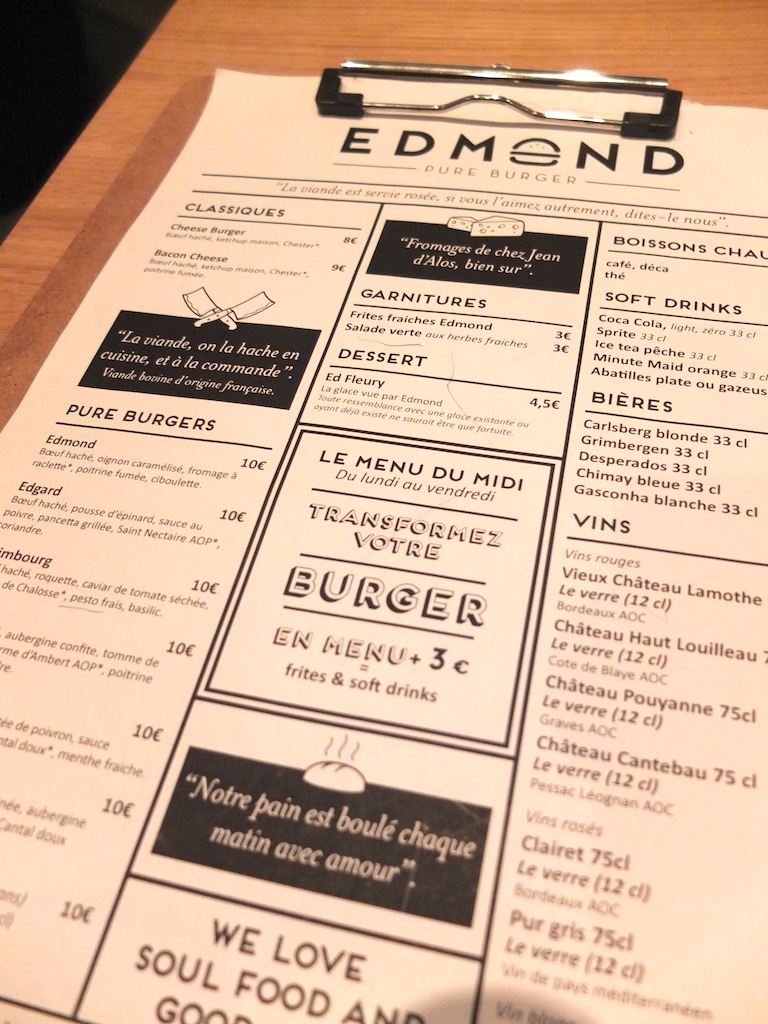 EDMOND
PURE BURGER
"La viande est servie rosée, si vous l'aimez autrement, dites-le nous".
CLASSIQUES
Cheese Burger
Bœuf haché, ketchup maison, Chester*. 8€
Bacon Cheese
Bœuf haché, ketchup maison, Chester*, 9€
poitrine fumée.
"La viande, on la hache en
cuisine, et à la commande".
Viande bovine d'origine française.
PURE BURGERS
Edmond 10€
Bœuf haché, oignon caramélisé, fromage à
raclette*, poitrine fumée, ciboulette.
Edgard 10€
Bœuf haché, pousse d'épinard, sauce au
poivre, pancetta grillée, Saint Nectaire AOP*,
coriandre.
imbourg 10€
haché, roquette, caviar de tomate séchée,
de Chalosse*, pesto frais, basilic.
10€
, aubergine confite, tomme de
rme d'Ambert AOP*, poitrine
re.
10€
tée de poivron, sauce
ntal doux*, menthe fraiche.
10€
inée, aubergine
Cantal doux
10€
ans)
cl)
"Fromages de chez Jean
d'Alos, bien sur".
GARNITURES
Frites fraiches Edmond 3€
Salade verte aux herbes fraiches 3€
DESSERT
Ed Fleury 4,5€
La glace vue par Edmond
Toute ressemblance avec une glace existante ou
ayant déjà existé ne saurait être que fortuite.
LE MENU DU MIDI
Du lundi au vendredi
TRANSFORMEZ
VOTRE
BURGER
EN MENU + 3 €
=
frites & soft drinks
"Notre pain est boulé chaque
matin avec amour".
WE LOVE
SOUL FOOD AND
GOOD
BOISSONS CHAU
café, déca
thé
SOFT DRINKS
Coca Cola, light, zéro 33 cl
Sprite 33 cl
Ice tea pêche 33 cl
Minute Maid orange 33 cl
Abatilles plate ou gazeus
BIÈRES
Carlsberg blonde 33 cl
Grimbergen 33 cl
Desperados 33 cl
Chimay bleue 33 cl
Gasconha blanche 33 cl
VINS
Vins rouges
Vieux Château Lamothe
Le verre (12 cl)
Bordeaux AOC
Château Haut Louilleau 7
Le verre (12 cl)
Cote de Blaye AOC
Château Pouyanne 75cl
Le verre (12 cl)
Graves AOC
Château Cantebau 75 cl
Le verre (12 cl)
Pessac Léognan AOC
Vins rosés
Clairet 75cl
Le verre (12 cl)
Bordeaux AOC
Pur gris 75cl
Le verre (12 cl)
Vin de pays méditerranéen
Vin blanc